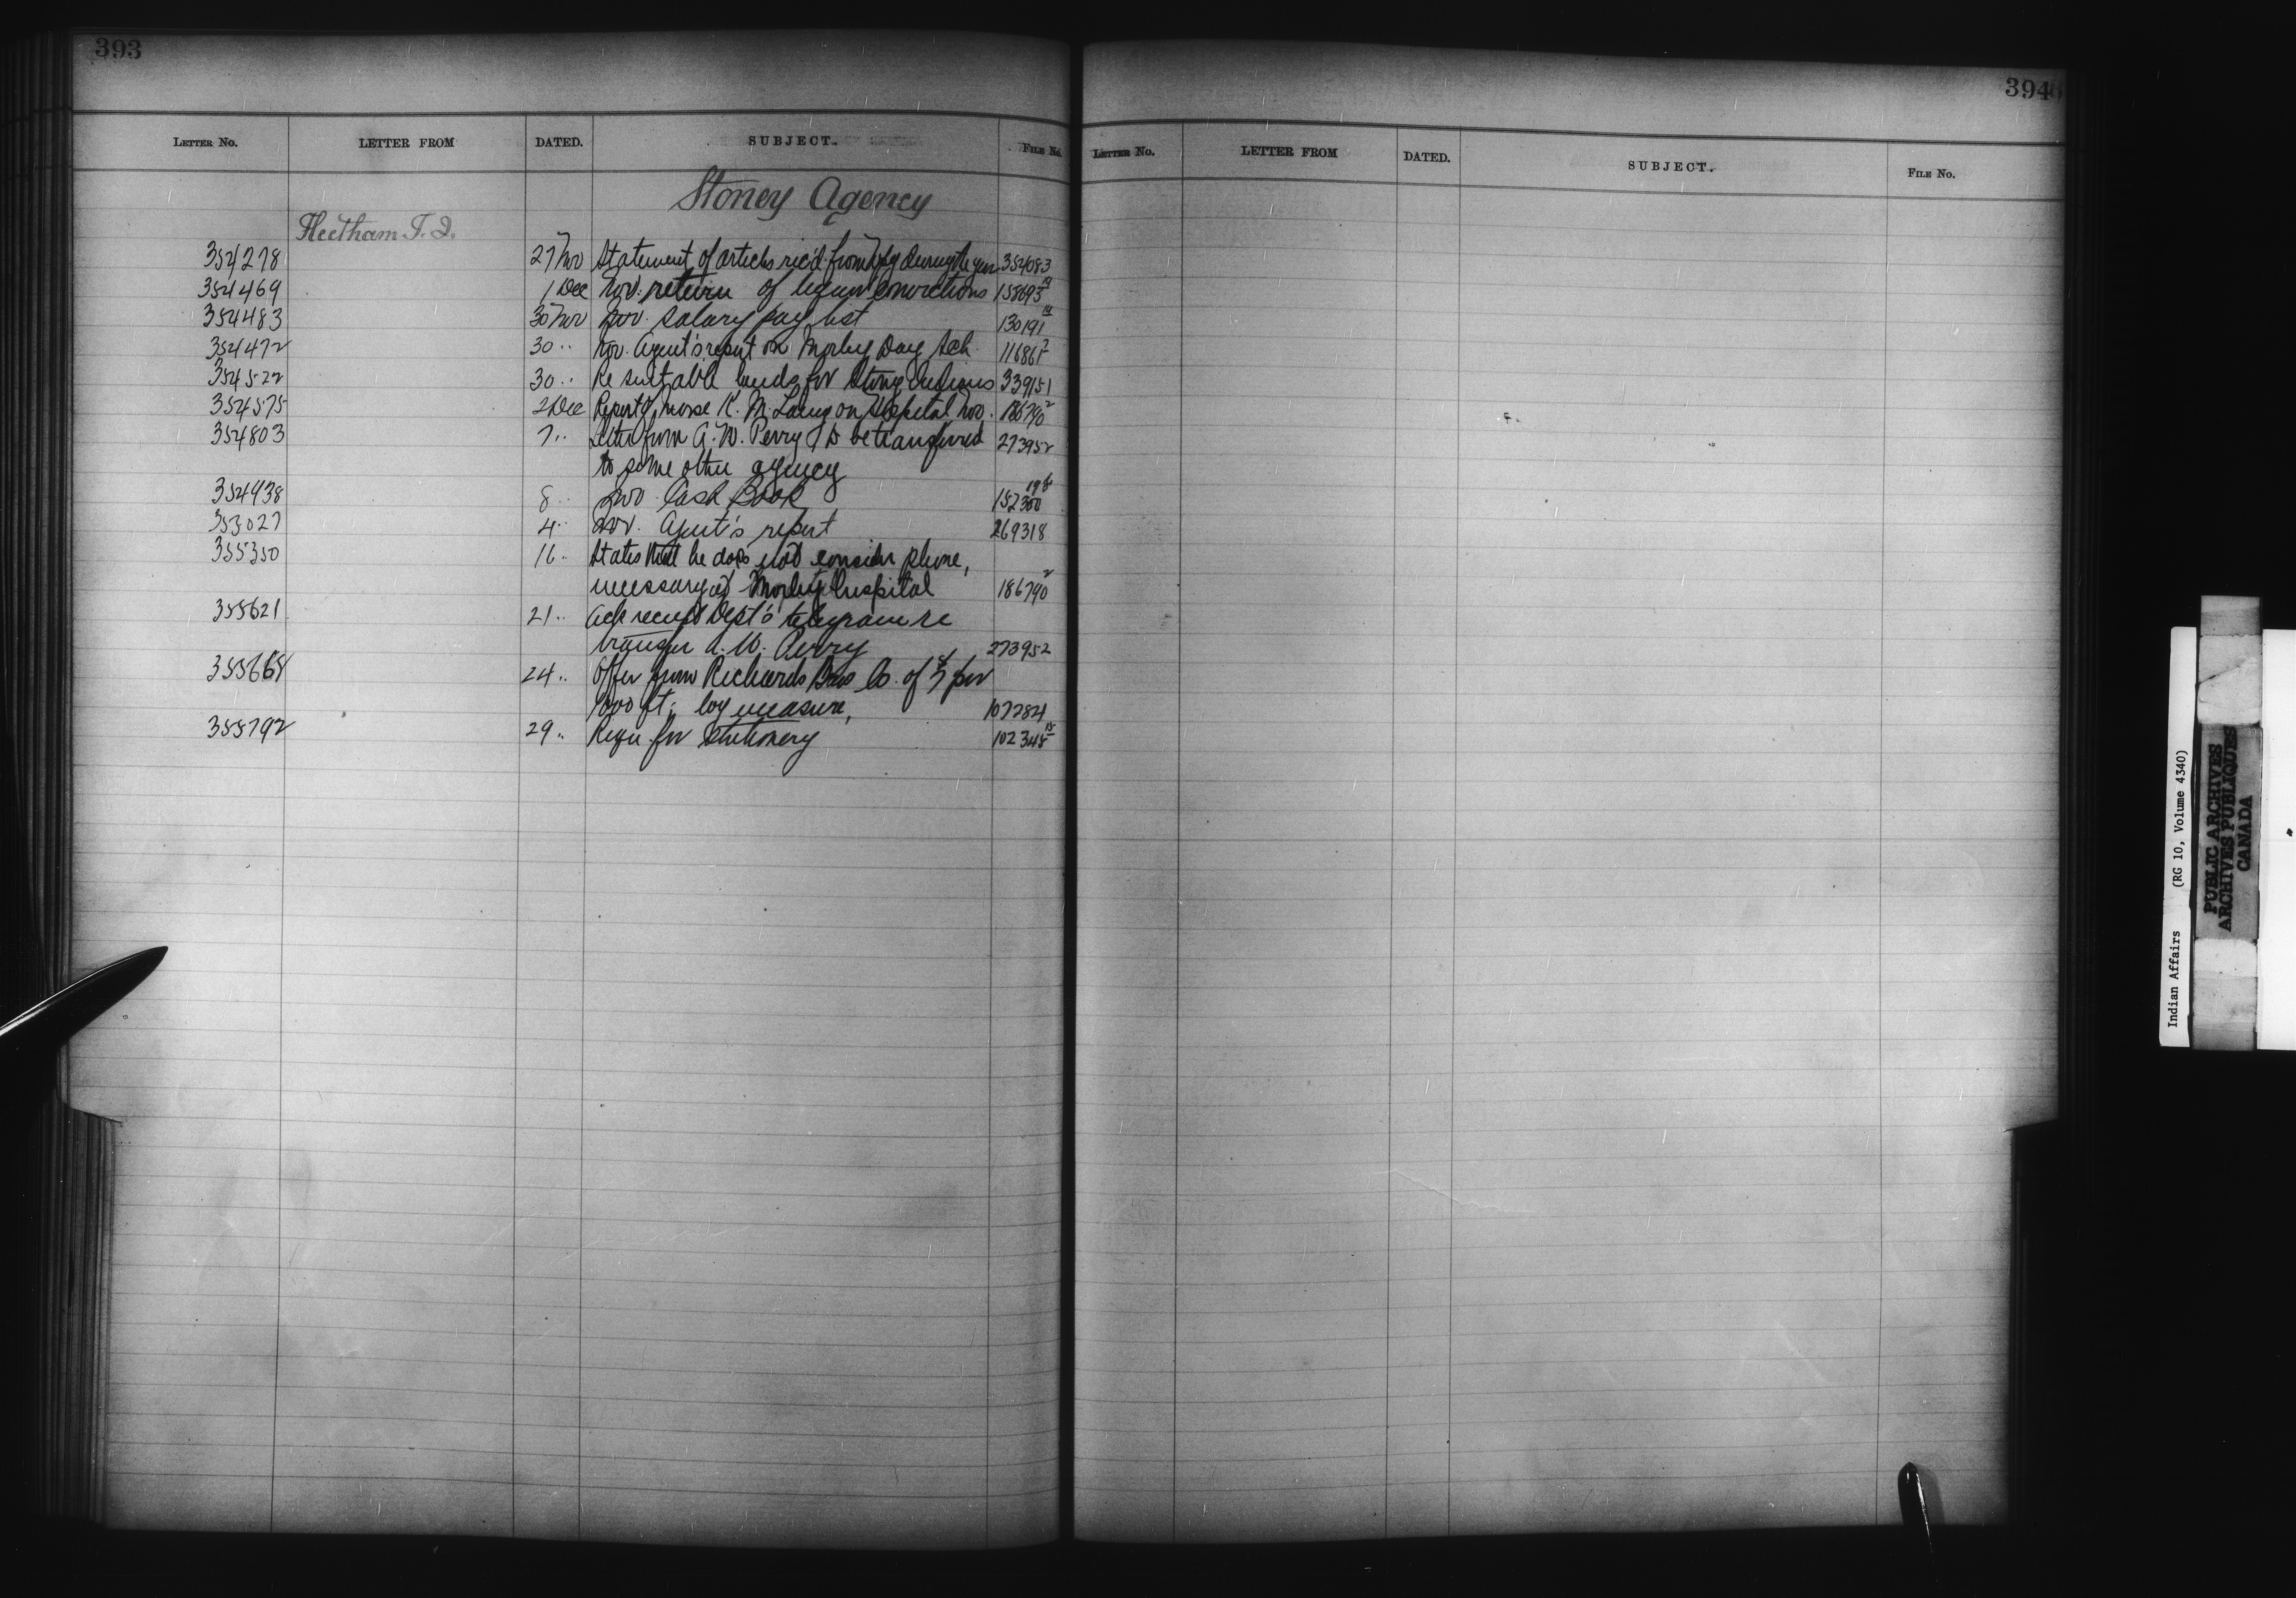 393
394
LETTER NO. LETTER FROM DATED. SUBJECT. FILE No.
LETTER NO. LETTER FROM DATED. SUBJECT. FILE NO.
Stoney Agency
Fleetham T. J.
354278 27 Nov Statement of articles rec'd from during the year 354083
354469 1 Dec Nov. return of liquor convictions 155693
354483 30 Nov Nov. salary pay list 130191
354472 30 " Nov. Agent's report on Morley Day Sch. 116861
354522 30 " Re suitable lands for Stony Indians 339151
354575 2 Dec Report of nurse K. M. Laing on Hospital Nov. 186790 2
354803 7 " Letter from A. W. Perry to be transferred 273952
to some other agency
354938 8 " Nov Cash Book 152300 198
353027 4 " Nov. Agent's report 269318
355350 16 " States that he does not consider phone,
necessary at Morley Hospital 186790 2
355621 21 " Ack receipt Dept's telegram re
transfer A. W. Perry 273952
355664 24 " Offer from Richards Bros Co. of per
1000 ft; log measure, 107284
355792 29 " Requ. for Stationery 102345 15
Indian Affairs (RG 10, Volume 4340)
PUBLIC ARCHIVES
ARCHIVES PUBLIQUES
CANADA